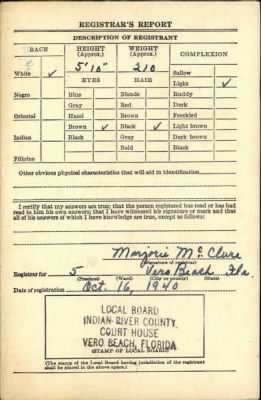 REGISTRAR'S REPORT
DESCRIPTION OF REGISTRANT
RACE HEIGHT (Approx.) WEIGHT (Approx.) COMPLEXION
5'10" 210
White ✓ EYES HAIR Sallow
Light ✓
Negro Blue Blonde Ruddy
Gray Red Dark
Oriental Hazel Brown Freckled
Brown ✓ Black ✓ Light brown
Indian Black Gray Dark brown
Bald Black
Filipino
Other obvious physical characteristics that will aid in identification
I certify that my answers are true; that the person registered has read or has had
read to him his own answers; that I have witnessed his signature or mark and that
all of his answers of which I have knowledge are true, except as follows:
Marjorie McClure
(Signature of registrar)
Registrar for 5 Vero Beach Fla
(Precinct) (Ward) (City or county) (State)
Date of registration Oct. 16, 1940
LOCAL BOARD
INDIAN RIVER COUNTY
COURT HOUSE
VERO BEACH, FLORIDA
(STAMP OF LOCAL BOARD)
(The stamp of the Local Board having jurisdiction of the registrant
shall be placed in the above space.)